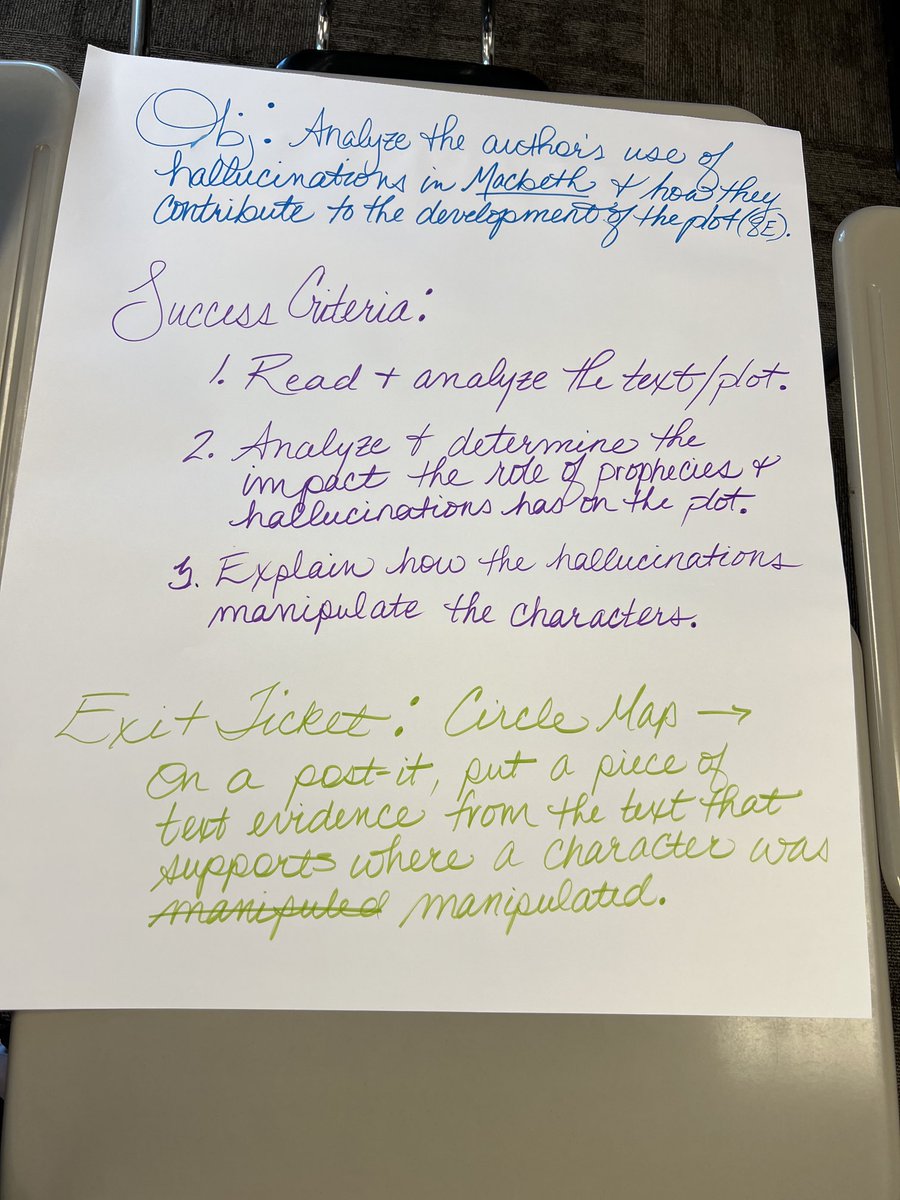 Obj: Analyze the author's use of
hallucinations in Macbeth + how they
contribute to the development of the plot (8E).
Success Criteria:
1. Read + analyze the text/plot.
2. Analyze + determine the
impact the role of prophecies +
hallucinations has on the plot.
3. Explain how the hallucinations
manipulate the characters.
Exit Ticket: Circle Map →
On a post-it, put a piece of
text evidence from the text that
supports where a character was
manipuled manipulated.